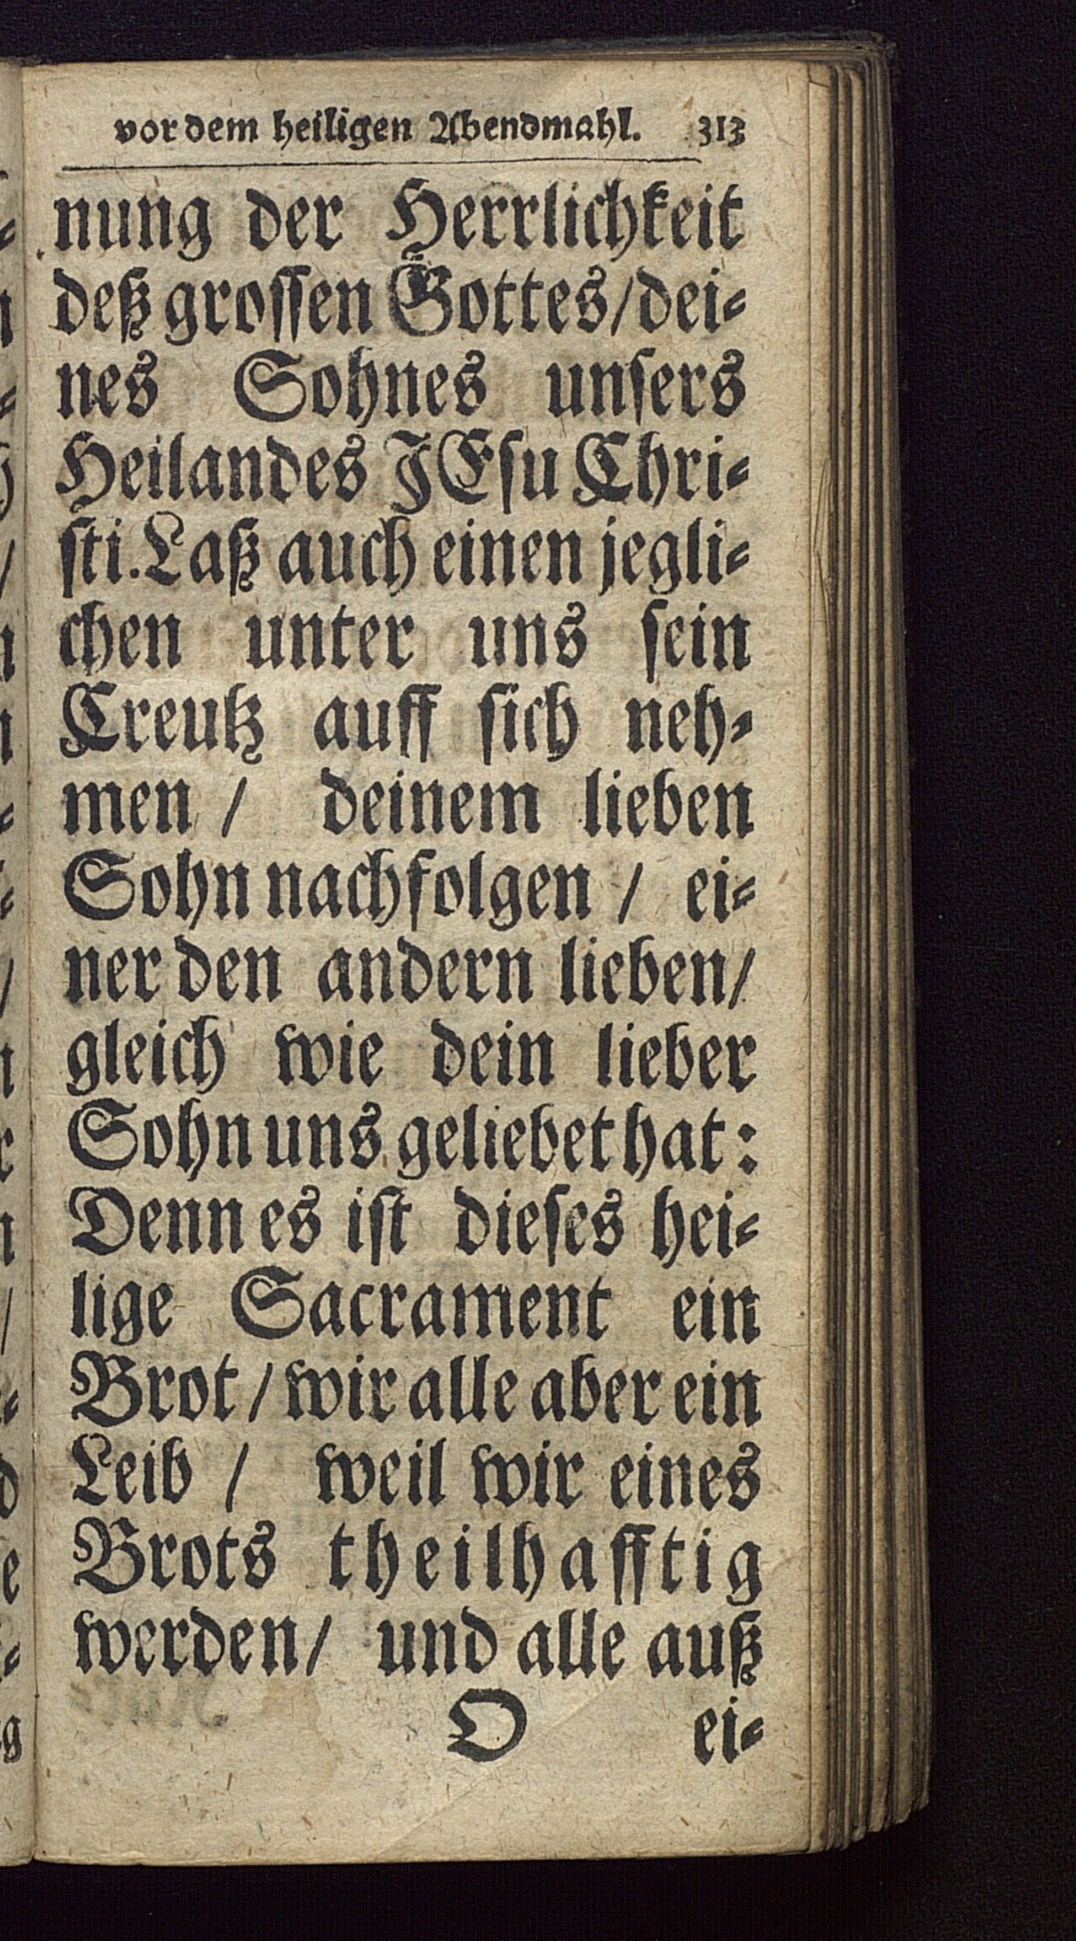 vor dem heiligen Abendmahl. 313
nung der Herrlichkeit
deß grossen Gottes/dei-
nes Sohnes unsers
Heilandes JEsu Chri-
sti. Laß auch einen jegli-
chen unter uns sein
Creutz auff sich neh-
men / deinem lieben
Sohn nachfolgen / ei-
ner den andern lieben/
gleich wie dein lieber
Sohn uns geliebet hat:
Denn es ist dieses hei-
lige Sacrament ein
Brot/wir alle aber ein
Leib / weil wir eines
Brots theilhafftig
werden/ und alle auß
O ei-